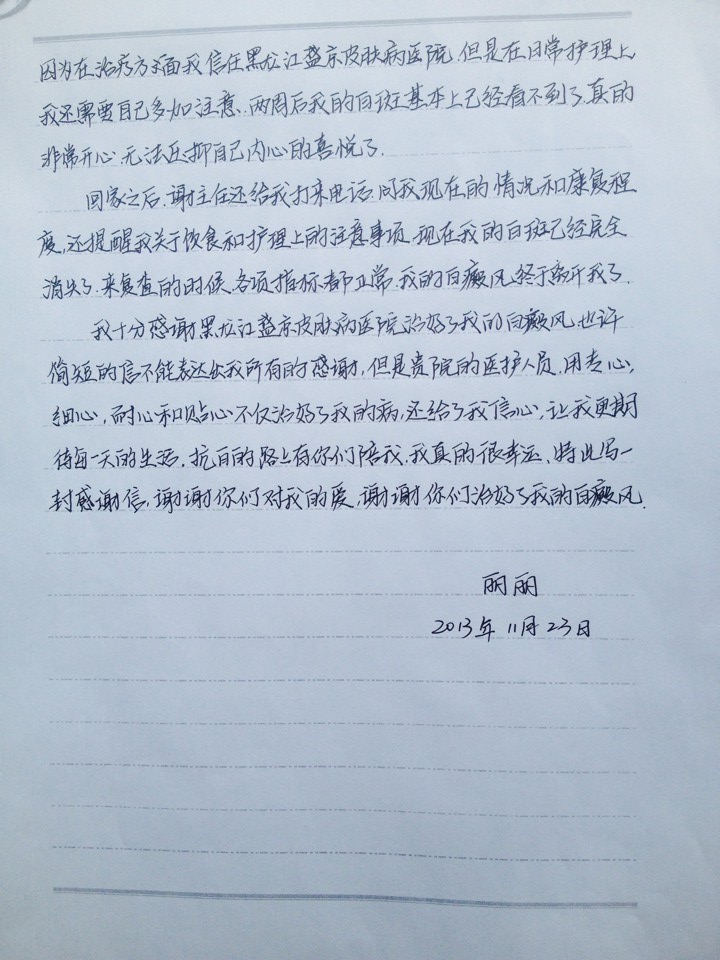 因为在治疗方面我信任黑龙江盛京皮肤病医院.但是在日常护理上
我还需要自己多加注意.两周后我的白斑基本上已经看不到了.真的
非常开心.无法压抑自己内心的喜悦了.
回家之后.谢主任还给我打来电话.问我现在的情况和康复程
度.还提醒我关于饮食和护理上的注意事项.现在我的白斑已经完全
消失了.来复查的时候.各项指标都正常.我的白癜风终于离开我了.
我十分感谢黑龙江盛京皮肤病医院治好了我的白癜风.也许
简短的信不能表达出我所有的感谢,但是贵院的医护人员.用专心,
细心,耐心和贴心不仅治好了我的病,还给了我信心,让我更期
待每一天的生活.抗白的路上有你们陪我.我真的很幸运.特此写一
封感谢信,谢谢你们对我的爱,谢谢你们治好了我的白癜风.
丽丽
2013年11月23日